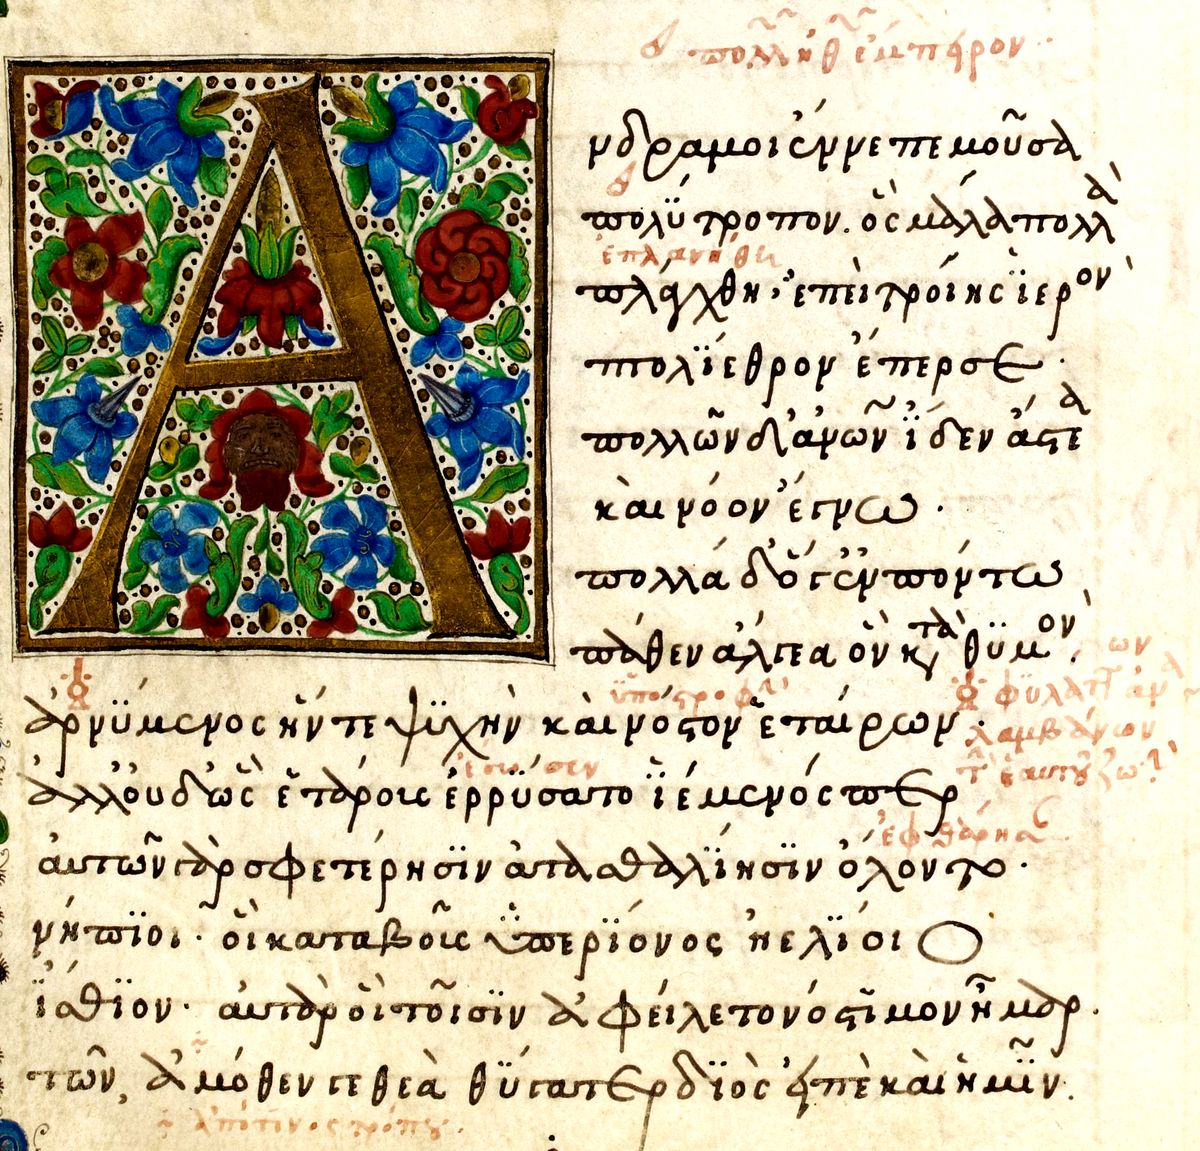 πολλῆ ἔμπειρον
Ἄνδρα μοι ἔννεπε μοῦσα
πολύτροπον. ὃς μάλα πολλὰ
ἐπλανήθη
πλάγχθη, ἐπεὶ τροίης ἱερὸν
πτολίεθρον ἔπερσε.
πολλῶν δ' ἀνθρώπων ἴδεν ἄστεα
καὶ νόον ἔγνω.
πολλὰ δ' ὅγ' ἐν πόντω
πάθεν ἄλγεα ὃν κατὰ θϋμὸν.
ὑποστροφὴν
ἀρνΰμενος ἥν τε ψϋχὴν καὶ νόστον ἑταίρων.
λαμβάνων
ἔσωσεν
ἀλλ' οὐδ' ὣς ἑτάροις ἐρρΰσατο ἱέμενός περ
ἐφθάρησαν
αὐτῶν γὰρ σφετέρησϊν ἀτασθαλίησϊν ὄλοντο.
νήπϊοι. οἳ κατὰ βοῦς ὑπερϊόνος ἠελίοιο
ἤσθϊον. αὐτὰρ ὁ τοῖσϊν ἀφείλετο νόστϊμον ἦμαρ.
τῶν, ἀμόθεν γε θεὰ θΰγατερ δϊὸς εἰπὲ καὶ ἡμῖν.
ἀπό τινος τρόπου.